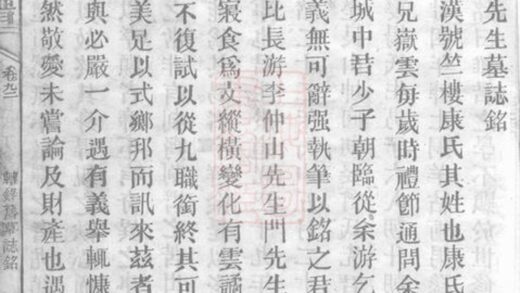 先生墓誌銘
漢號竺樓康氏其姓也康氏
兄嶽雲每歲時禮節通問余
城中君少子朝臨從余游乞
義無可辭强執筆以銘之君
比長游李仲山先生門先生
寢食爲文縱橫變化有雲譎
不復試以從九職銜終其可
美足以式鄉邦而訊來茲者
與必嚴一介遇有義舉輒慷
然敬愛未嘗論及財產也遇
卷九
誌銘